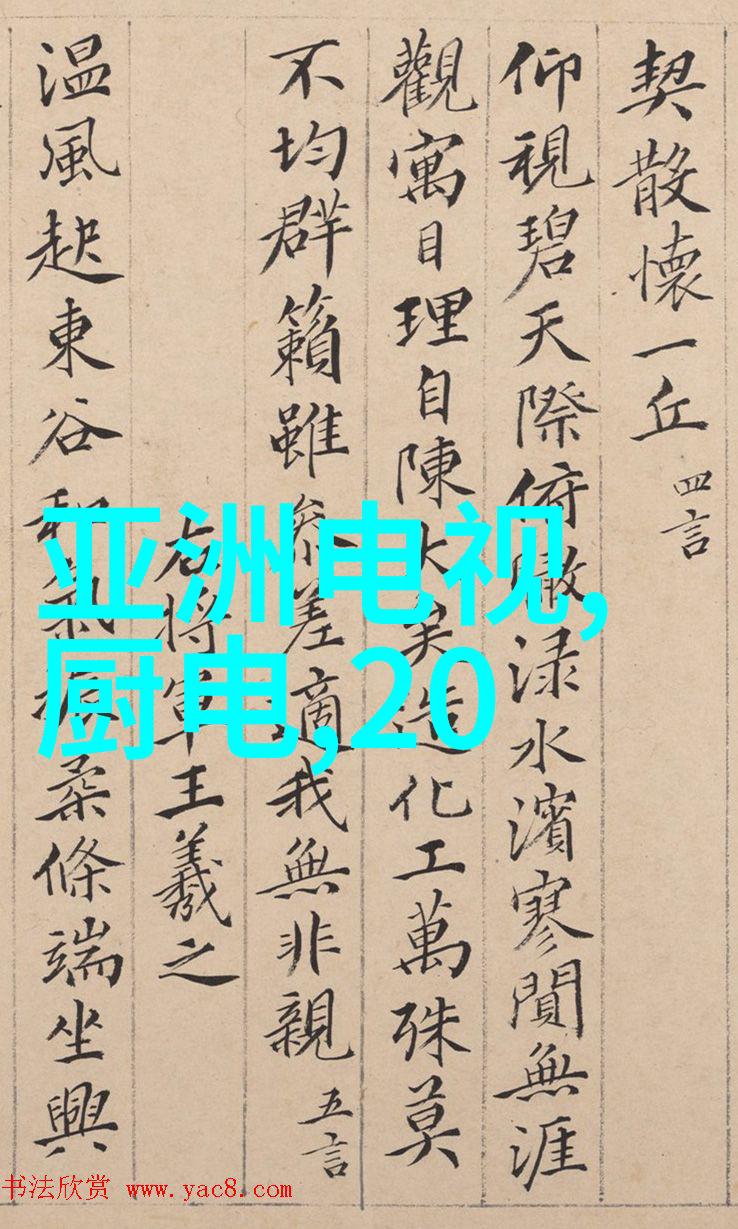 契散懷一丘 四言
仰視碧天際俯瞰渌水濱寥閴無涯
觀寓目理自陳大矣造化工萬殊莫
不均群籟雖參差適我無非親 五言
右將軍王羲之
温風起東谷和氣振柔條端坐興
亚洲电视,
厨电,20
书法欣赏 www.yac8.com